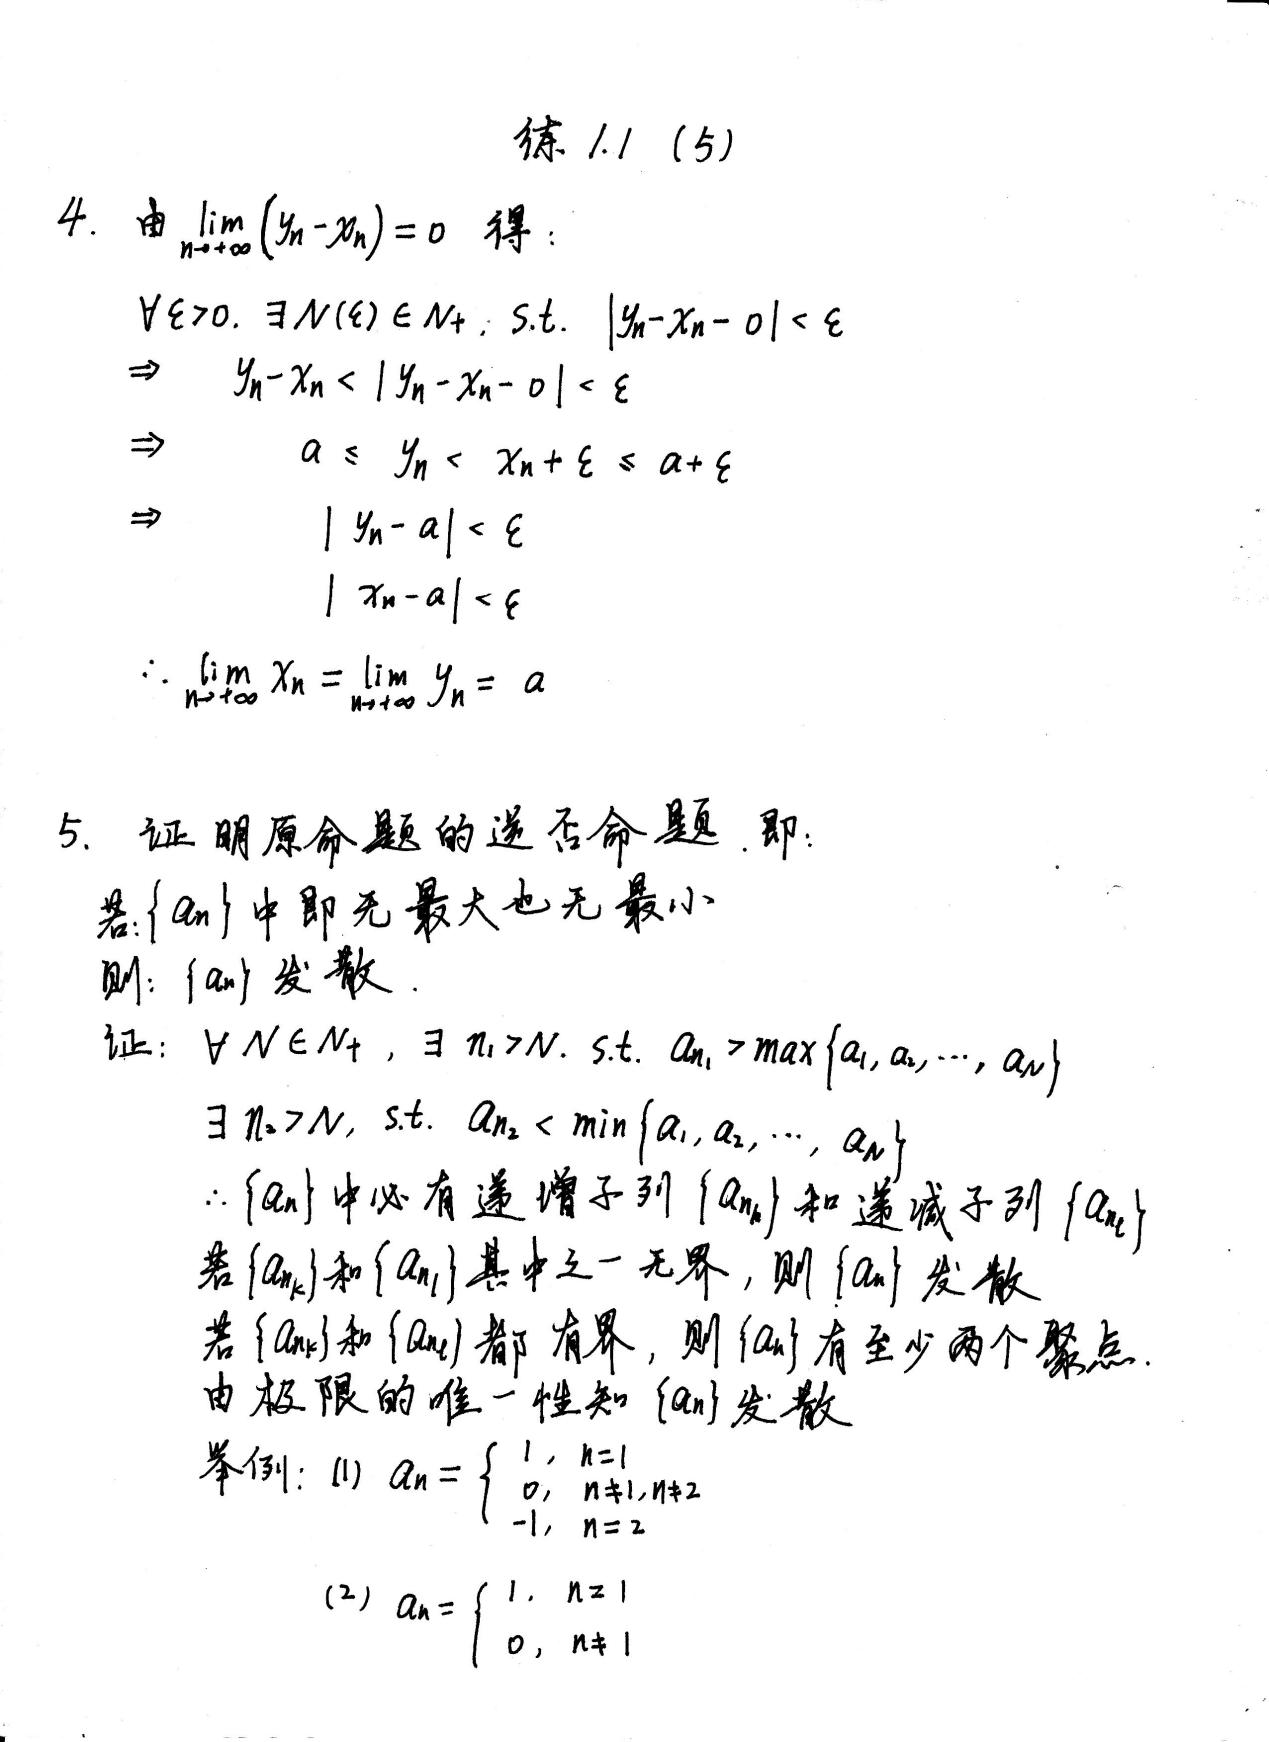 练 1.1 (5)
4. 由 lim_{n→+∞} (yₙ-xₙ) = 0 得:
∀ε>0. ∃N(ε)∈N₊, s.t. |yₙ-xₙ-0| < ε
⇒ yₙ-xₙ < |yₙ-xₙ-0| < ε
⇒ a ≤ yₙ < xₙ+ε ≤ a+ε
⇒ |yₙ-a| < ε
|xₙ-a| < ε
∴ lim_{n→+∞} xₙ = lim_{n→+∞} yₙ = a
5. 证明原命题的逆否命题.即:
若:{aₙ}中即无最大也无最小
则: {aₙ}发散.
证: ∀N∈N₊, ∃n₁>N. s.t. a_{n₁} > max{a₁, a₂, ⋯, a_N}
∃n₂>N, s.t. a_{n₂} < min{a₁, a₂, ⋯, a_N}
∴{aₙ}中必有递增子列{a_{n_k}}和递减子列{a_{n_l}}
若{a_{n_k}}和{a_{n_l}}其中之一无界, 则{aₙ}发散
若{a_{n_k}}和{a_{n_l}}都有界, 则{aₙ}有至少两个聚点.
由极限的唯一性知{aₙ}发散
举例: (1) aₙ = { 1, n=1
0, n≠1, n≠2
-1, n=2
(2) aₙ = { 1. n=1
0, n≠1